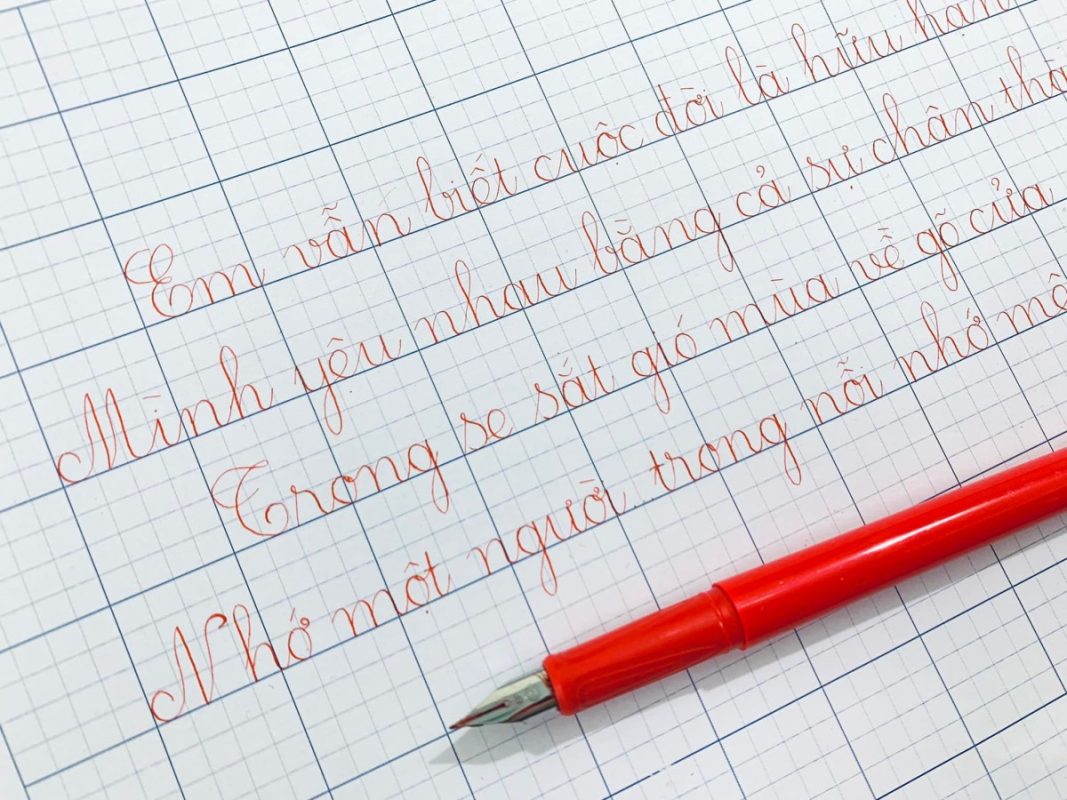 Em vẫn biết cuộc đời là hữu hạn
Minh yệu nhau bằng cả sự chân
Trong se sắt gió mùa về gõ cửa
Nhớ một người trong nỗi nhớ